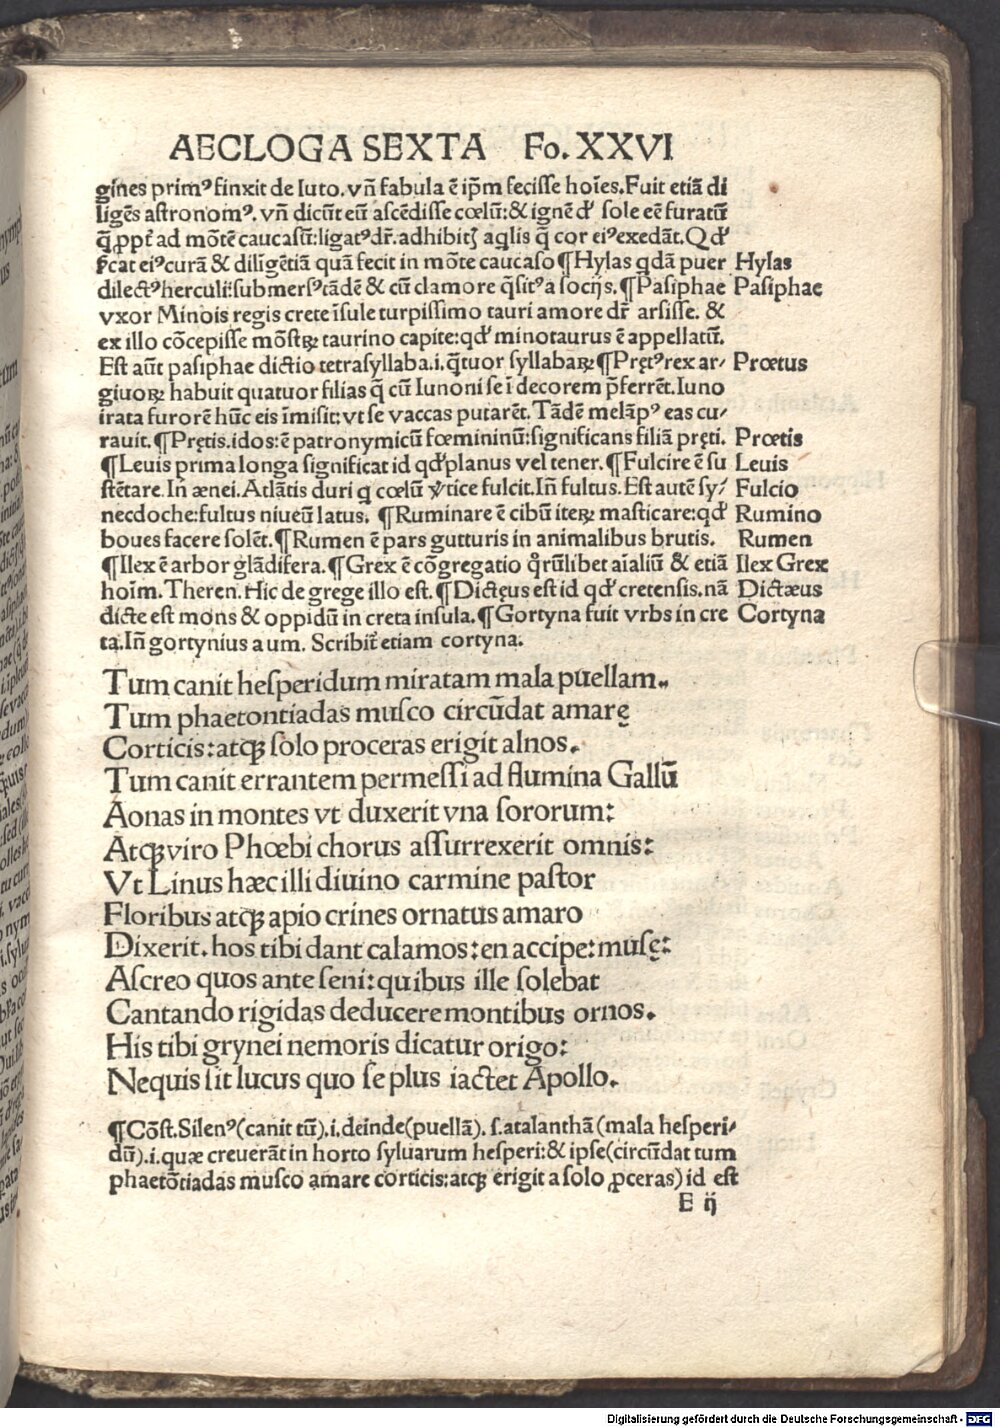 AECLOGA SEXTA Fo. XXVI
gines primꝰ finxit de luto. vñ fabula ē ip̄m fecisse hoīes. Fuit etiā di
ligēs astronomꝰ. vñ dicūt eū ascēdisse cœlū: & ignē d' sole eē furatū
q̄ ꝓpt' ad mōtē caucasū: ligatꝰ dr̄. adhibitꝭ aq̄lis q̄ cor eiꝰ exedāt. Qd'
ficat eiꝰ curā & diligētiā quā fecit in mōte caucaso ¶ Hylas qdā puer Hylas
dilectꝰ herculi: submersꝰ tādē & cū clamore q̄sitꝰ a socijs. ¶ Pasiphae Pasiphae
vxor Minois regis crete īsule turpissimo tauri amore dr̄ arsisse. &
ex illo cōcepisse mōstꝝ taurino capite: qd' minotaurus ē appellatū.
Est aūt pasiphae dictio tetrasyllaba .i. q̄tuor syllabaꝝ ¶ Prętꝰ rex ar⸗ Prœtus
giuoꝝ habuit quatuor filias q̄ cū Iunoni se ī decorem p̄ferrēt. Iuno
irata furorē hūc eis īmisit: vt se vaccas putarēt. Tādē melāpꝰ eas cu⸗
rauit. ¶ Prętis .idos: ē patronymicū fœmininū: significans filiā pręti. Prœtis
¶ Leuis prima longa significat id qd' planus vel tener. ¶ Fulcire ē su Leuis
stētare. Iñ ænei. Atlātis duri q cœlū v̄tice fulcit. Iñ fultus. Est autē sy⸗ Fulcio
necdoche: fultus niueū latus. ¶ Ruminare ē cibū iteꝝ masticare: qd' Rumino
boues facere solēt. ¶ Rumen ē pars gutturis in animalibus brutis. Rumen
¶ Ilex ē arbor glādifera. ¶ Grex ē cōgregatio q̄rūlibet aīaliū & etiā Ilex Grex
hoīm. Theren. Hic de grege illo est. ¶ Dictęus est id qd' cretensis. nā Dictæus
dicte est mons & oppidū in creta insula. ¶ Gortyna fuit vrbs in cre Cortyna
ta. Iñ gortynius a um. Scribit̄ etiam cortyna.
Tum canit hesperidum miratam mala puellam.
Tum phaetontiadas musco circūdat amarę
Corticis: atqꝫ solo proceras erigit alnos.
Tum canit errantem permessi ad flumina Gallū
Aonas in montes vt duxerit vna sororum:
Atqꝫ viro Phœbi chorus assurrexerit omnis:
Vt Linus hæc illi diuino carmine pastor
Floribus atqꝫ apio crines ornatus amaro
Dixerit. hos tibi dant calamos: en accipe: musę:
Ascreo quos ante seni: quibus ille solebat
Cantando rigidas deducere montibus ornos.
His tibi grynei nemoris dicatur origo:
Nequis sit lucus quo se plus iactet Apollo.
¶ Cōst. Silenꝰ (canit tū) .i. deinde (puellā). s. atalanthā (mala hesperi⸗
dū) .i. quæ creuerāt in horto syluarum hesperi: & ipse (circūdat tum
phaetōtiadas musco amare corticis: atqꝫ erigit a solo ꝓceras) id est
E ij
Digitalisierung gefördert durch die Deutsche Forschungsgemeinschaft - DFG